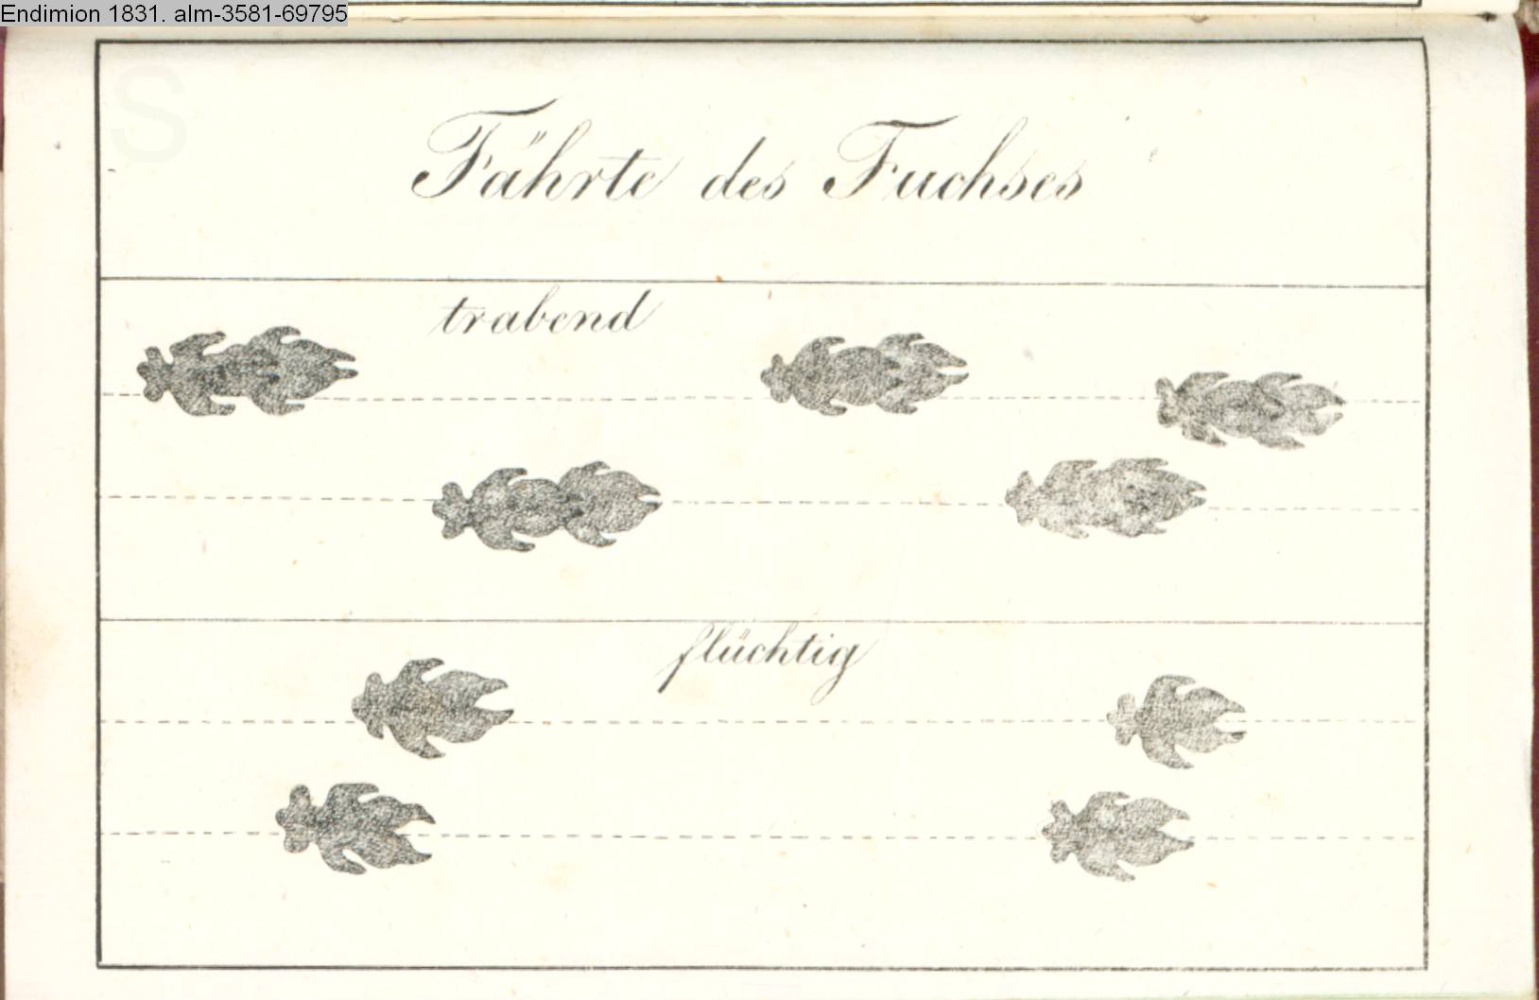 Endimion 1831. alm-3581-69795
S
Fährte des Fuchses
trabend
flüchtig